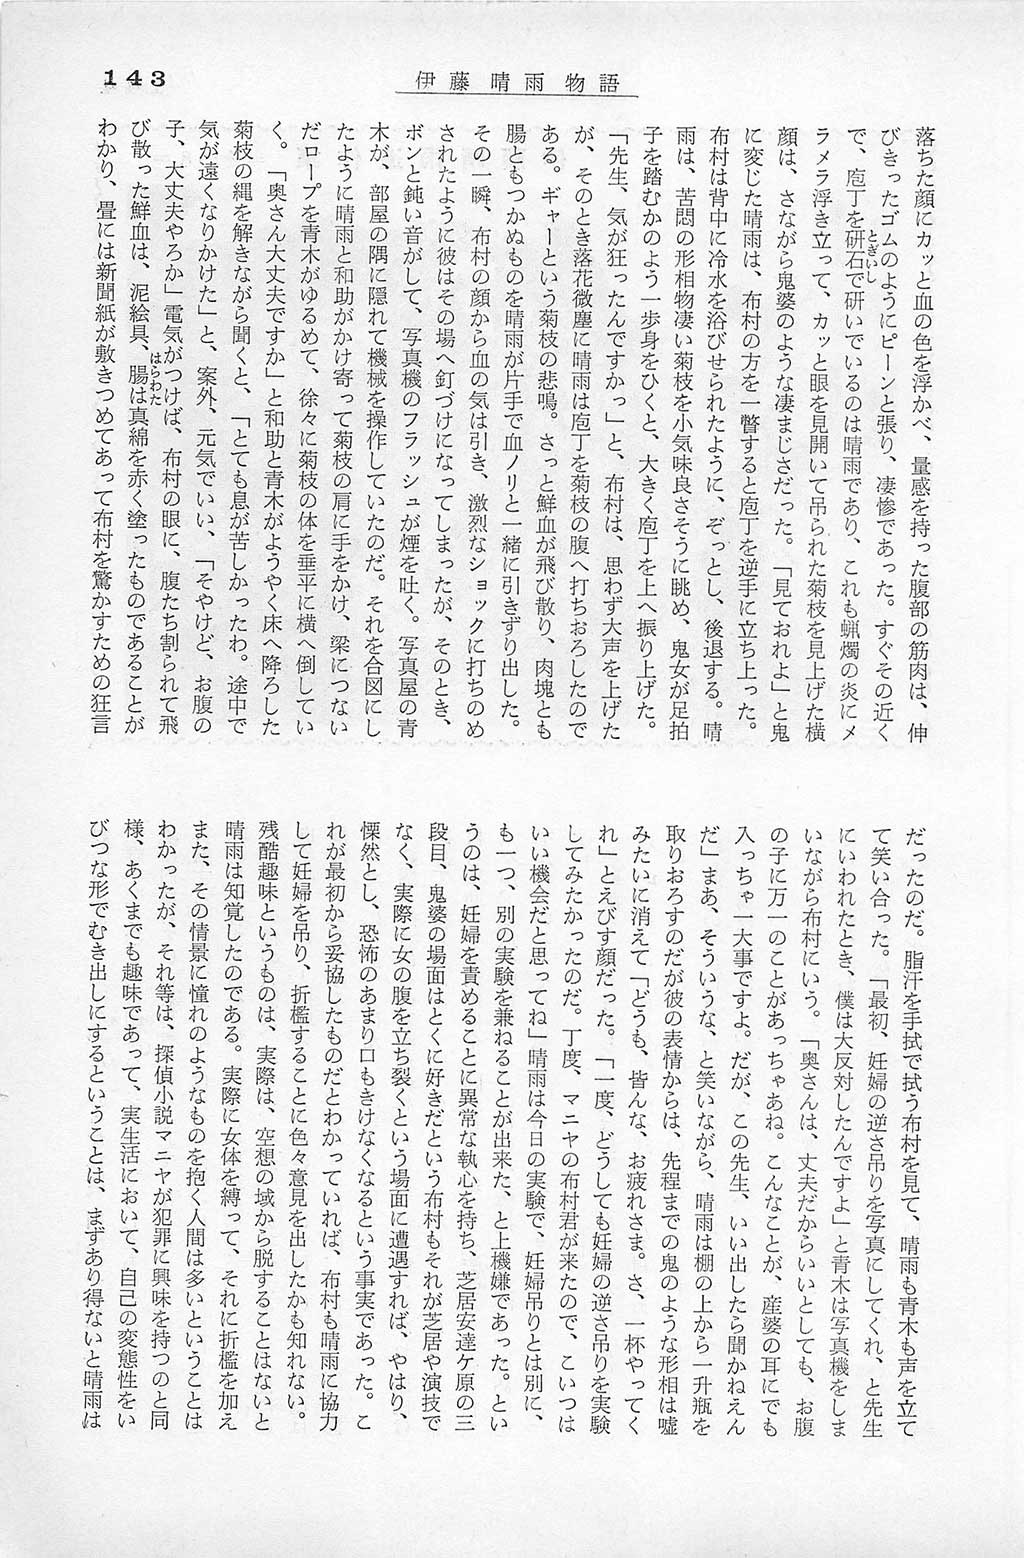 143
伊藤晴雨物語
落ちた顔にカッと血の色を浮かべ、量感を持った腹部の筋肉は、伸
びきったゴムのようにピーンと張り、凄惨であった。すぐその近く
で、庖丁を研石で研いでいるのは晴雨であり、これも蝋燭の炎にメ
とぎいし
ラメラ浮き立って、カッと眼を見開いて吊られた菊枝を見上げた横
顔は、さながら鬼婆のような凄まじさだった。「見ておれよ」と鬼
に変じた晴雨は、布村の方を一瞥すると庖丁を逆手に立ち上った。
布村は背中に冷水を浴びせられたように、ぞっとし、後退する。晴
雨は、苦悶の形相物凄い菊枝を小気味良さそうに眺め、鬼女が足拍
子を踏むかのよう一歩身をひくと、大きく庖丁を上へ振り上げた。
「先生、気が狂ったんですかっ」と、布村は、思わず大声を上げた
が、そのとき落花微塵に晴雨は庖丁を菊枝の腹へ打ちおろしたので
ある。ギャーという菊枝の悲鳴。さっと鮮血が飛び散り、肉塊とも
腸ともつかぬものを晴雨が片手で血ノリと一緒に引きずり出した。
その一瞬、布村の顔から血の気は引き、激烈なショックに打ちのめ
されたように彼はその場へ釘づけになってしまったが、そのとき、
ボンと鈍い音がして、写真機のフラッシュが煙を吐く。写真屋の青
木が、部屋の隅に隠れて機械を操作していたのだ。それを合図にし
たように晴雨と和助がかけ寄って菊枝の肩に手をかけ、梁につない
だロープを青木がゆるめて、徐々に菊枝の体を垂平に横へ倒してい
く。「奥さん大丈夫ですか」と和助と青木がようやく床へ降ろした
菊枝の縄を解きながら聞くと、「とても息が苦しかったわ。途中で
気が遠くなりかけた」と、案外、元気でいい、「そやけど、お腹の
子、大丈夫やろか」電気がつけば、布村の眼に、腹たち割られて飛
び散った鮮血は、泥絵具、腸は真綿を赤く塗ったものであることが
はらわた
わかり、畳には新聞紙が敷きつめてあって布村を驚かすための狂言
だったのだ。脂汗を手拭で拭う布村を見て、晴雨も青木も声を立て
て笑い合った。「最初、妊婦の逆さ吊りを写真にしてくれ、と先生
にいわれたとき、僕は大反対したんですよ」と青木は写真機をしま
いながら布村にいう。「奥さんは、丈夫だからいいとしても、お腹
の子に万一のことがあっちゃあね。こんなことが、産婆の耳にでも
入っちゃ一大事ですよ。だが、この先生、いい出したら聞かねえん
だ」まあ、そういうな、と笑いながら、晴雨は棚の上から一升瓶を
取りおろすのだが彼の表情からは、先程までの鬼のような形相は嘘
みたいに消えて「どうも、皆んな、お疲れさま。さ、一杯やってく
れ」とえびす顔だった。「一度、どうしても妊婦の逆さ吊りを実験
してみたかったのだ。丁度、マニヤの布村君が来たので、こいつは
いい機会だと思ってね」晴雨は今日の実験で、妊婦吊りとは別に、
も一つ、別の実験を兼ねることが出来た、と上機嫌であった。とい
うのは、妊婦を責めることに異常な執心を持ち、芝居安達ケ原の三
段目、鬼婆の場面はとくに好きだという布村もそれが芝居や演技で
なく、実際に女の腹を立ち裂くという場面に遭遇すれば、やはり、
慄然とし、恐怖のあまり口もきけなくなるという事実であった。こ
れが最初から妥協したものだとわかっていれば、布村も晴雨に協力
して妊婦を吊り、折檻することに色々意見を出したかも知れない。
残酷趣味というものは、実際は、空想の域から脱することはないと
晴雨は知覚したのである。実際に女体を縛って、それに折檻を加え
また、その情景に憧れのようなものを抱く人間は多いということは
わかったが、それ等は、探偵小説マニヤが犯罪に興味を持つのと同
様、あくまでも趣味であって、実生活において、自己の変態性をい
びつな形でむき出しにするということは、まずあり得ないと晴雨は